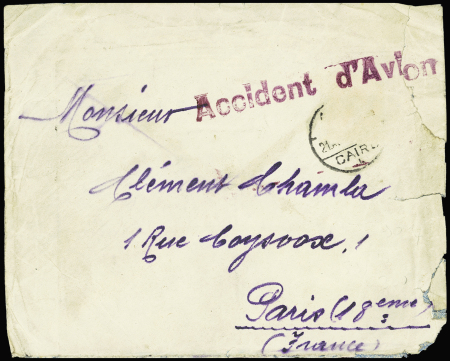 Monsieur Accident d'Avion
CAIR
Clément Chamla
1 Rue Coysvox, 1
Paris (18eme)
(France)